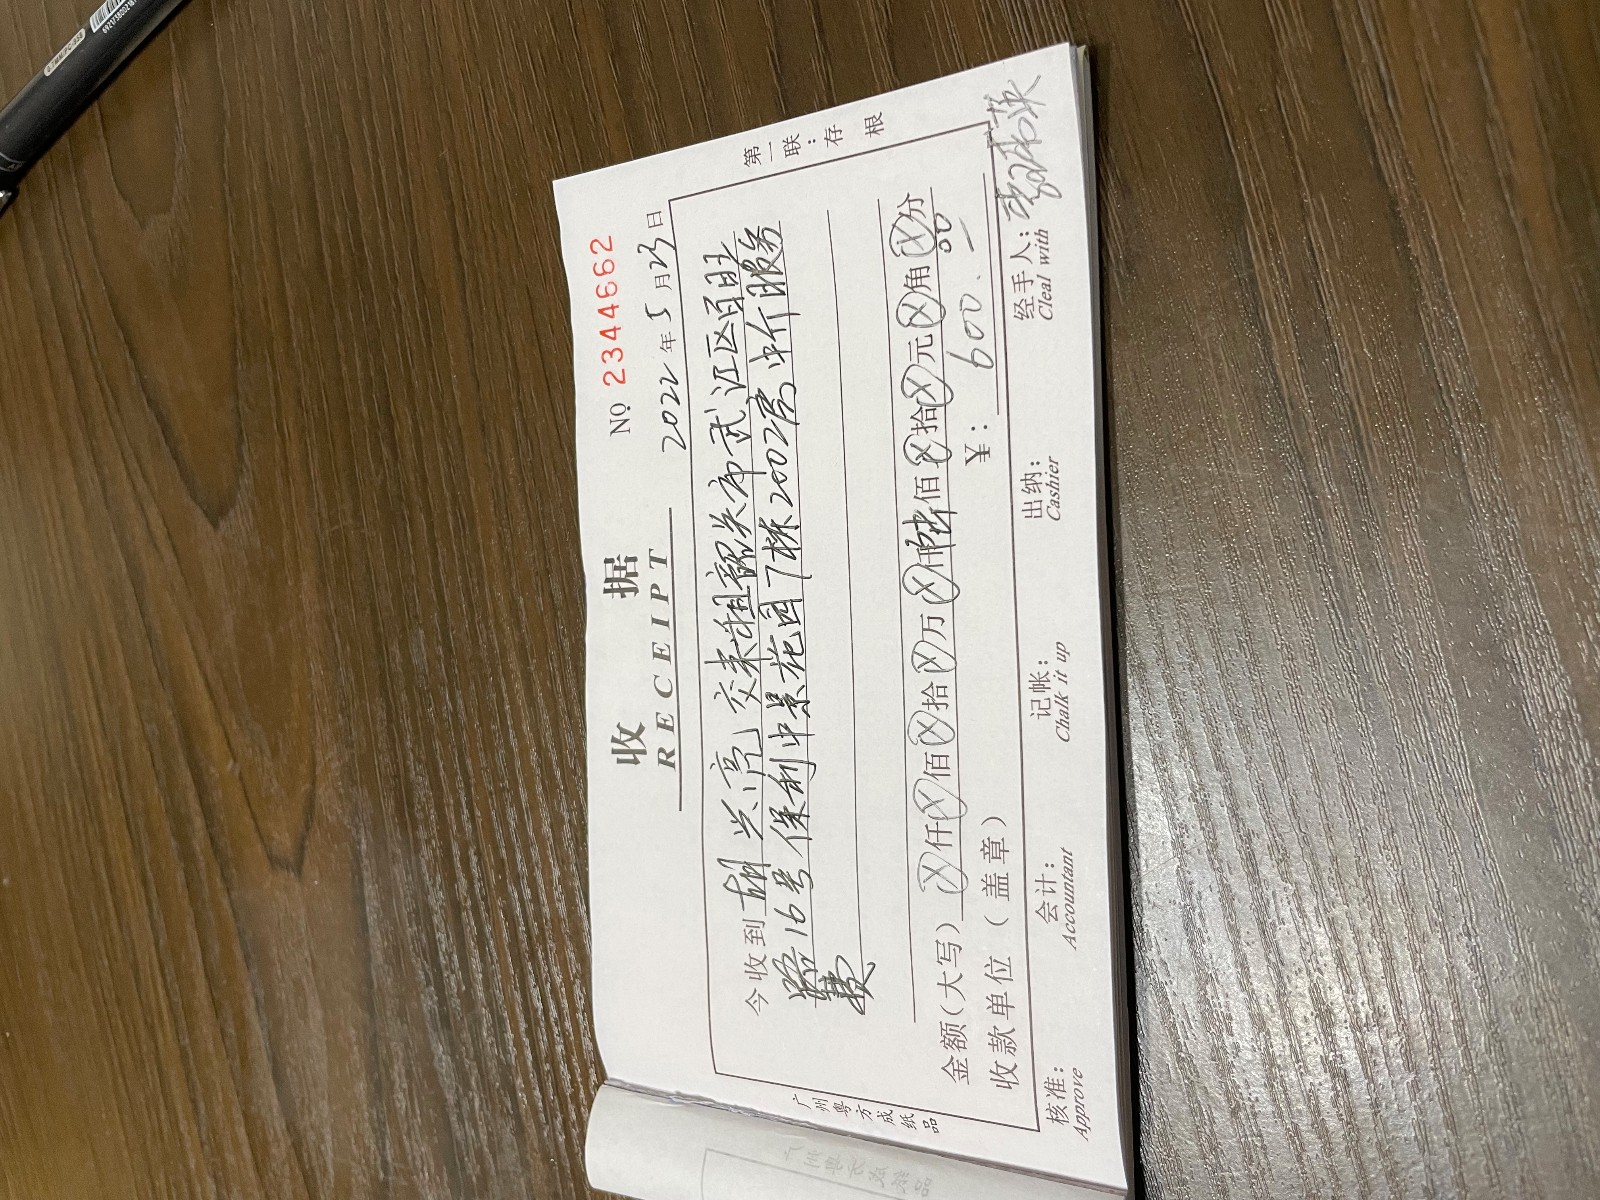 收据
RECEIPT
№ 2344662
2022年5月23日
第一联:存根
今收到胡兴亮交来租韶关市武江区百旺
路16号保利中景花园7栋2002房中介服务
费
金额(大写)ⓧ仟ⓧ佰ⓧ拾ⓧ万ⓧ仟陆佰ⓧ拾ⓧ元ⓧ角ⓧ分
收款单位(盖章)
¥: 600.00
核准: 会计: 记帐: 出纳: 经手人:
Approve Accountant Chalk it up Cashier Cleal with
广州粤方成纸品